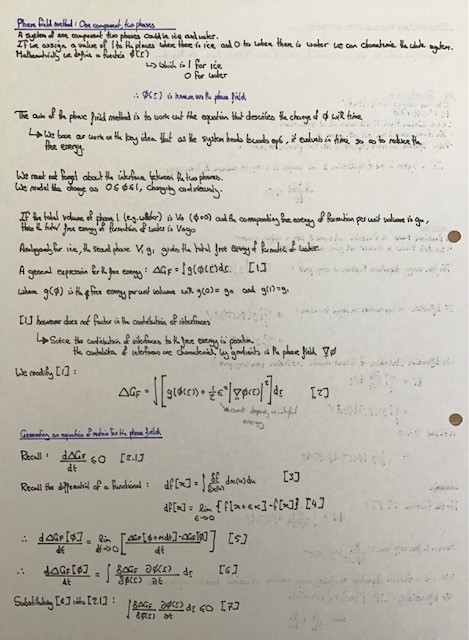 Phase field method: One component, two phases
A system of one component, two phases could be ice and water.
If we assign a value of 1 to the places where there is ice and 0 to where there is water we can characterise the whole system.
Mathematically we define a function φ(r)
↳ which is 1 for ice
0 for water
∴ φ(r) is known as the phase field
The aim of the phase field method is to work out the equation that describes the change of φ with time.
↳ We base our work on the key idea that as the system heads towards eqb, it evolves in time so as to reduce the
free energy.
We must not forget about the interface between the two phases.
We model the change as 0≤φ≤1, changing continuously.
If the total volume of phase 1 (e.g. water) is V₀ (φ=0) and the corresponding free energy of formation per unit volume is g₀,
then the total free energy of formation of water is V₀g₀
Analogously for ice, the second phase V₁g₁ gives the total free energy of formation of water.
A general expression for the free energy: ΔGF = ∫g(φ(r))dr. [1]
where g(φ) is the free energy per unit volume with g(0)=g₀ and g(1)=g₁
[1] however does not factor in the contribution of interfaces
↳ Since the contribution of interfaces to the free energy is positive,
the contribution of interfaces are characterised by gradients in the phase field, ∇φ
We modify [1]:
ΔGF = ∫[g(φ(r)) + ½ε²|∇φ(r)|²]dr [2]
const depends on
energy
Generating an equation of motion for the phase field
Recall: dΔGF/dt ≤0 [2.1]
Recall the differential of a functional: df[x] = ∫ δf/δx(u) dx(u)du [3]
df[x] = lim ε→0 {f[x+εx]-f[x]} [4]
∴ dΔGF[φ]/dt = lim dt→0 [ΔGF[φ+αdt]-ΔGF[φ]/dt] [5]
∴ dΔGF[φ]/dt = ∫ δΔGF/δφ(r) ∂φ(r)/∂t dr [6]
Substituting [6] into [2.1]: ∫ δΔGF/δφ(r) ∂φ(r)/∂t dr ≤0 [7]